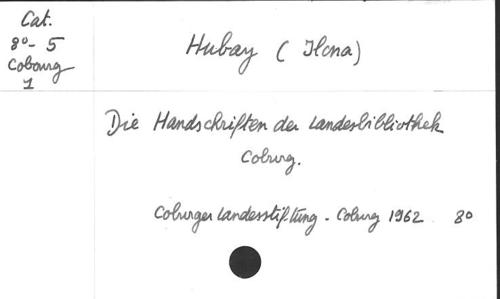 Cat.
8° - 5
Cobourg
1
Hubay ( Ilona)
Die Handschriften der Landesbibliothek
Coburg.
Coburger Landesstiftung - Coburg 1962 8°